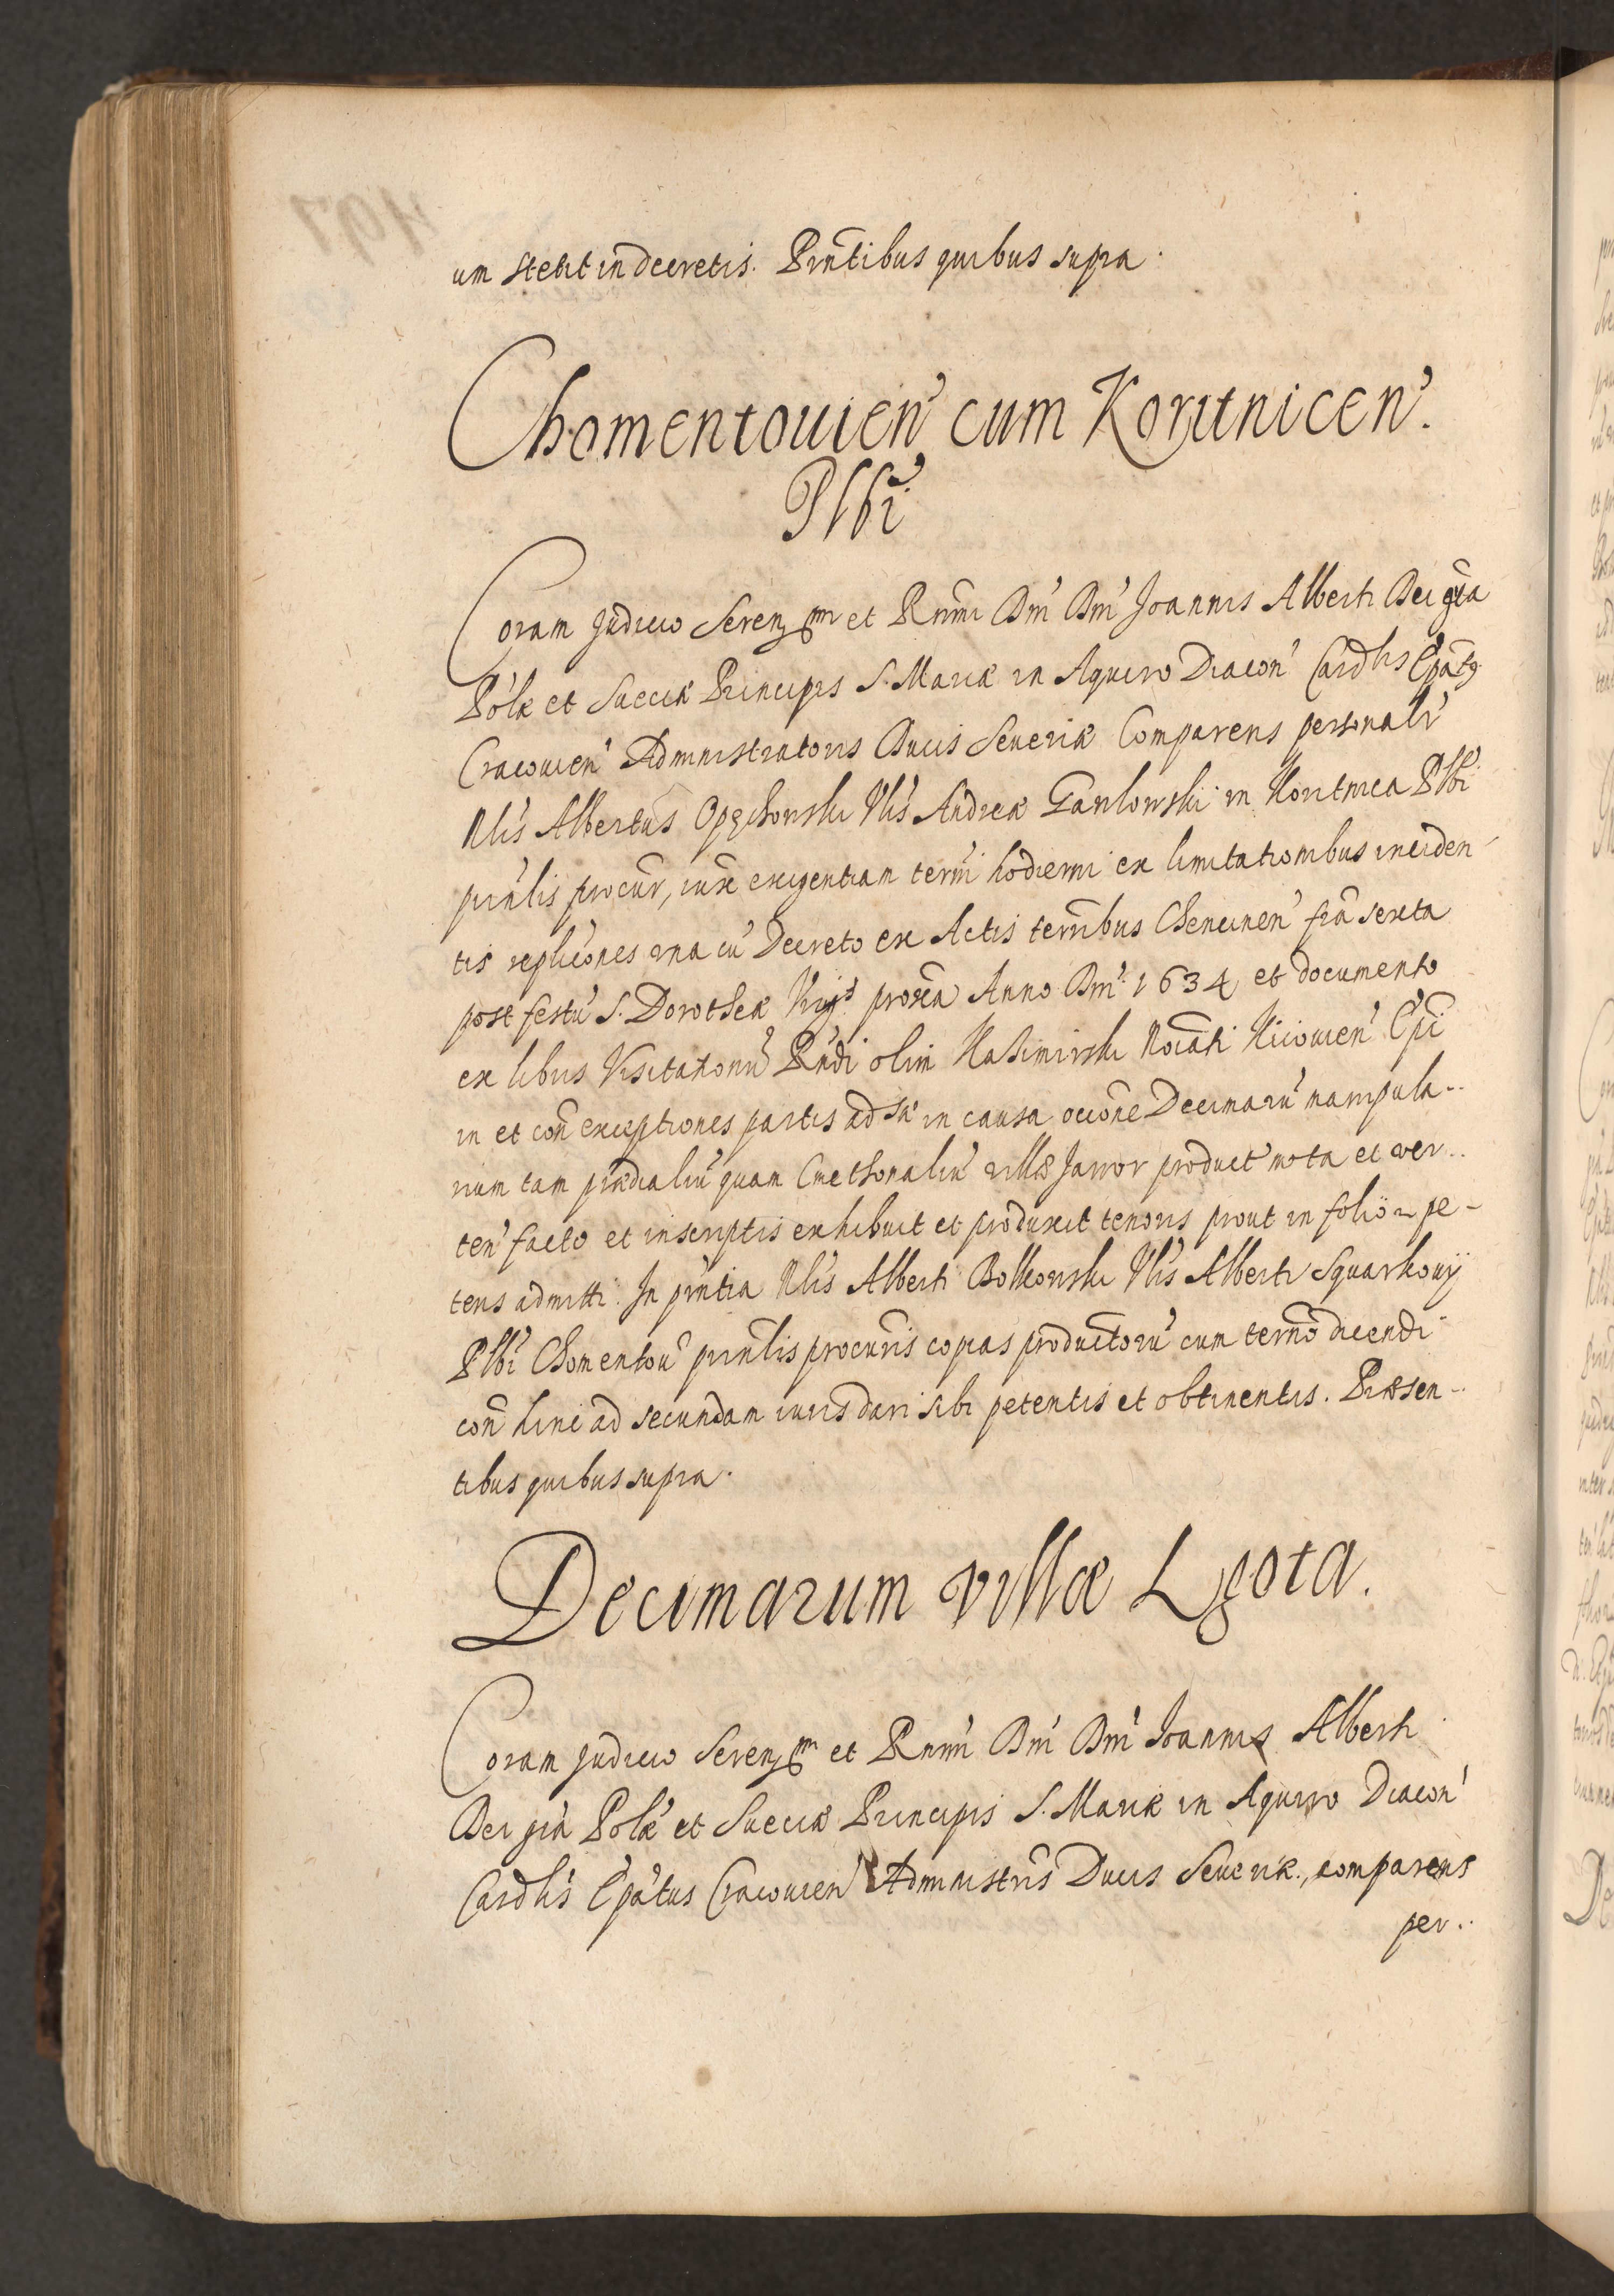 um stetit in decretis. Prñtibus quibus supra.
Chomentouien' cum Korÿtnicen'.
Plbĩ
Coram Judicio Seren[mi] et Rñmi Dnĩ Dnĩ Joannis Alberti Dei grã
Polæ et Sueciæ Principis S. Mariæ in Aquiro Diacon' Cardlis Epãtus
Cracouien' Administratoris Ducis Seueriæ Comparens personalr'
Nlis Albertus Opęchowski Vlis Andreæ Gawlowski in Koritnica Plbi
prinlis procur, iuxẽ exigentiam termi hodierni ex limitationibus inciden-
tis replicões una cu' Decreto ex Actis terrñbus Chencinen' fiã sexta
post festu' S. Dorotheæ Vrgs proxã Anno Dnĩ 1634 et documento
ex libris Visitationu' Rndi olim Kasimirski Noiati Kiiouien' Epi
in et coñ exceptiones partis adsæ in causa occõne Decimaru' manipula-
rium tam prædialiu' quam Cmethonaliu' villæ Jawor product' mota et ver-
ten' facto et in scriptis exhibuit et produxit tenoris prout in folio r pe-
tens admitti. In prntia Nlis Alberti Bolkowski Vlis Alberti Squarkowÿ
Plbĩ Chomentou' prinlis procuris copias productoru' cum termõ dicendi
coñ hinc ad secundam iuris dari sibi petentis et obtinentis. Præsen-
tibus quibus supra.
Decimarum villæ Lgota.
Coram Judicio Seren[mi] et Rnmĩ Dnĩ Dnĩ Joannis Alberti
Dei grã Polæ et Sueciæ Principis S. Mariæ in Aquiro Diacon'
Cardlis Epãtus Cracouien' Administris Ducis Seueriæ, comparens
per..